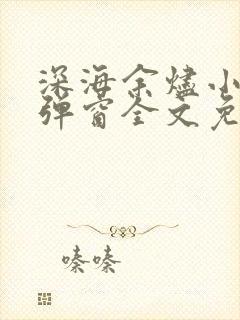 深海余烬小
弹窗全文免
嗪嗪